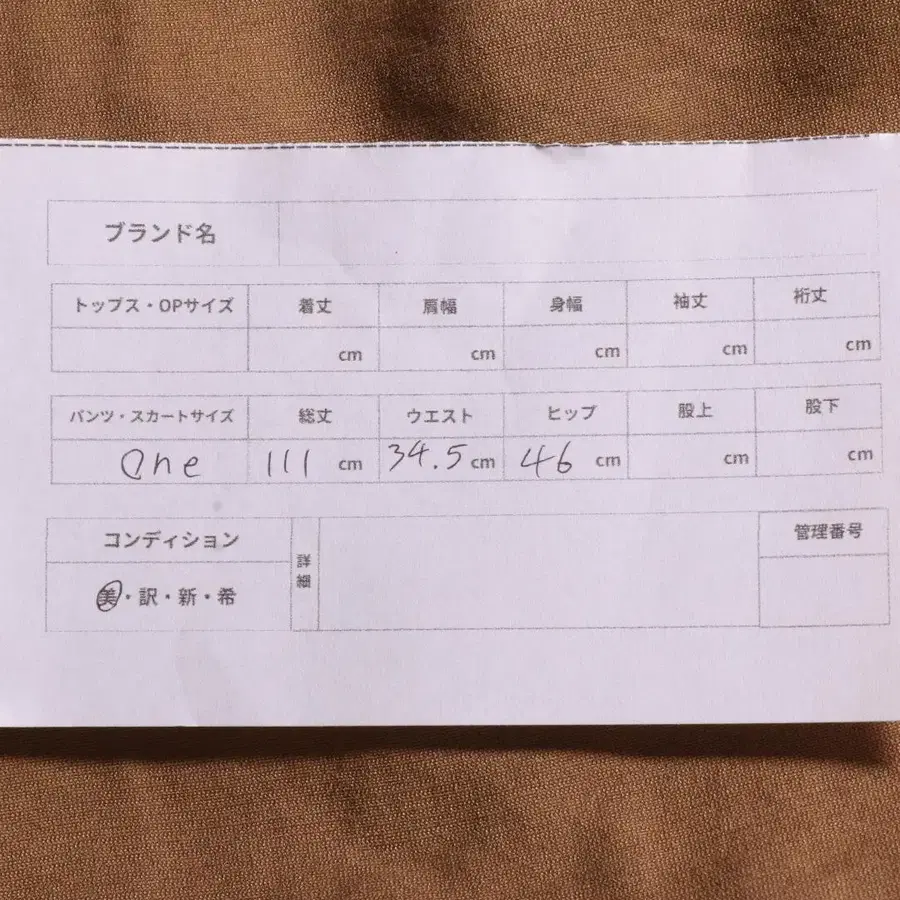 ブランド名
トップス・OPサイズ 着丈 肩幅 身幅 袖丈 裄丈
cm cm cm cm cm
パンツ・スカートサイズ 総丈 ウエスト ヒップ 股上 股下
One 111 cm 34.5 cm 46 cm cm cm
コンディション 詳細 管理番号
美・訳・新・希